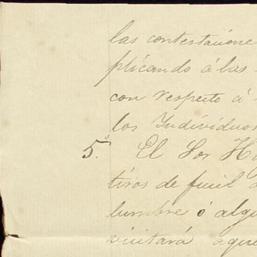 las contestacione
plicando á las
con respecto á
los Individuos
5.º El Sor H
tiros de fusil
lumbre ó alg
visitará aque